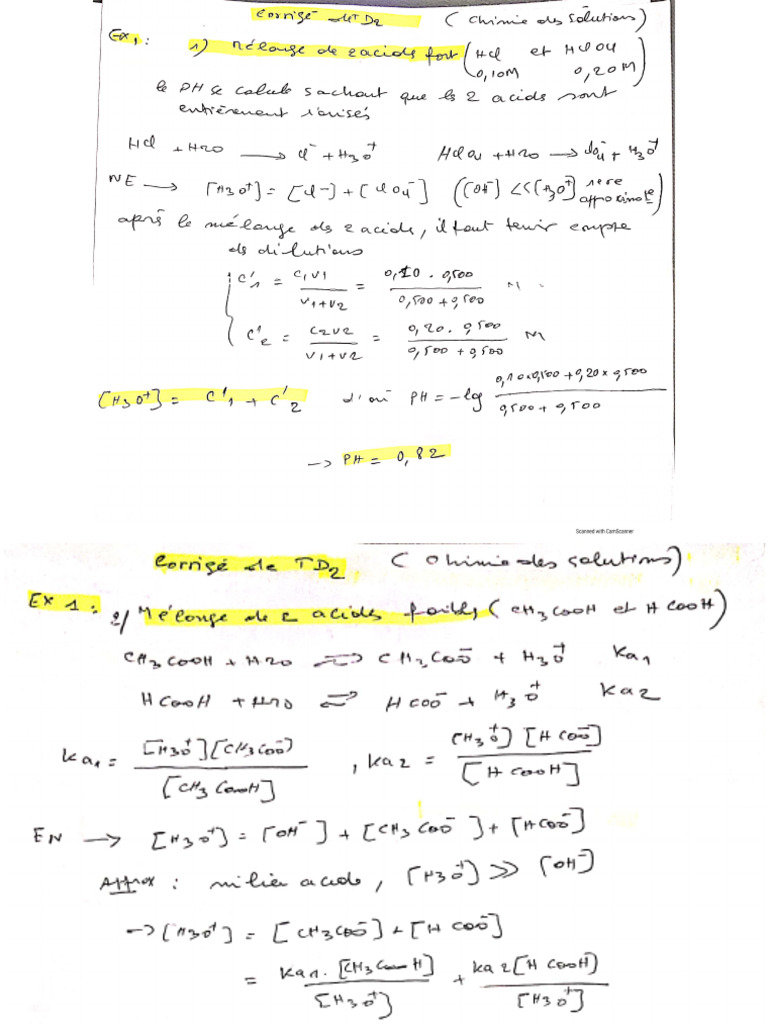 Corrigé de TD2 (Chimie des Solutions)
Ex1: 1) Mélange de 2 acids fort (HCl et HClO4
0,10M 0,20M)
le PH se calcule sachant que les 2 acids sont
entièrement ionisés
HCl + H2O → Cl⁻ + H3O⁺ HClO4 + H2O → ClO4⁻ + H3O⁺
NE → [H3O⁺] = [Cl⁻] + [ClO4⁻] ([OH⁻] << [H3O⁺] 1ere approximat)
après le mélange des 2 acids, il faut tenir compte
des dilutions
C'1 = C1V1 / V1+V2 = 0,10 . 0,500 / 0,500 + 0,500 M
C'2 = C2V2 / V1+V2 = 0,20. 0,500 / 0,500 + 0,500 M
[H3O⁺] = C'1 + C'2 d'où PH = -log 0,10×0,500 + 0,20 × 0,500 / 0,500 + 0,500
→ PH = 0,82
Scanned with CamScanner
Corrigé de TD2 (Chimie des Solutions)
Ex 1: 2/ Mélange de 2 acids faibles (CH3COOH et HCOOH)
CH3COOH + H2O ⇌ CH3COO⁻ + H3O⁺ Ka1
HCOOH + H2O ⇌ HCOO⁻ + H3O⁺ Ka2
Ka1 = [H3O⁺][CH3COO⁻] / [CH3COOH] , Ka2 = [H3O⁺][HCOO⁻] / [HCOOH]
EN → [H3O⁺] = [OH⁻] + [CH3COO⁻] + [HCOO⁻]
Approx : milieu acide, [H3O⁺] >> [OH⁻]
→ [H3O⁺] = [CH3COO⁻] + [HCOO⁻]
= Ka1. [CH3COOH] / [H3O⁺] + Ka2 [HCOOH] / [H3O⁺]